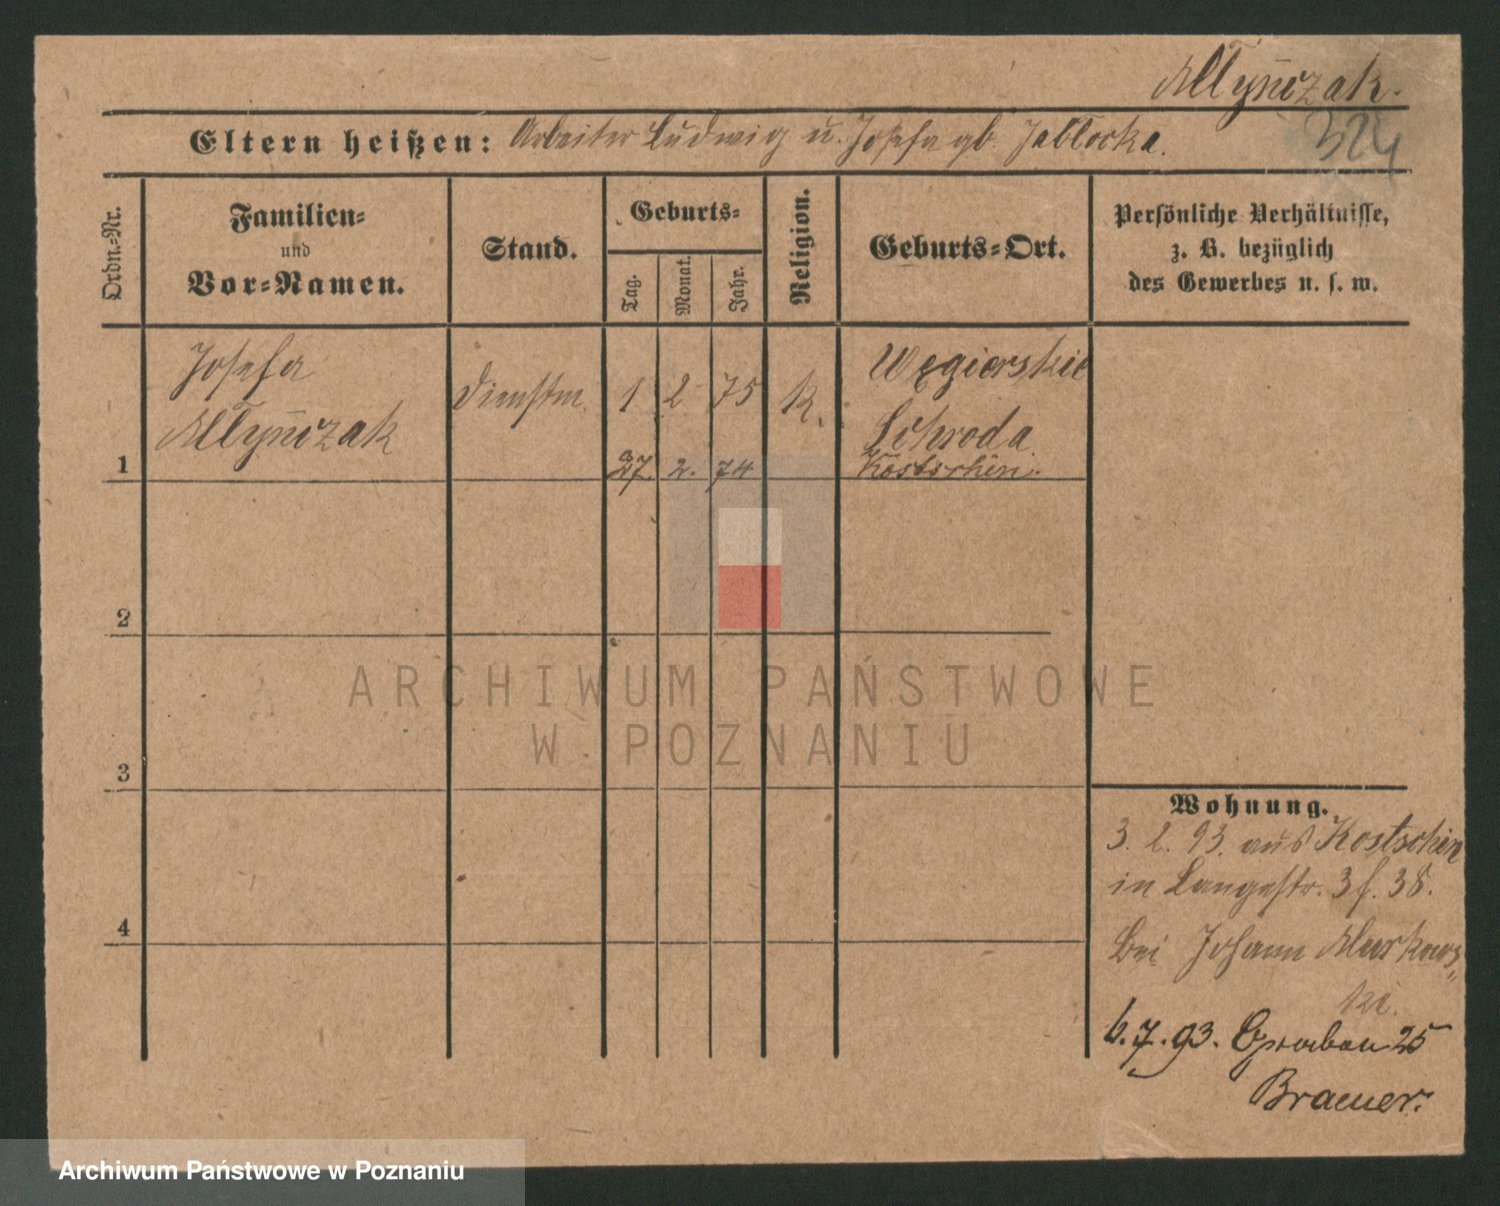 Młyńczak.
324
Eltern heißen: Arbeiter Ludwig u. Josefa gb. Jabłocka.
Ordn.-Nr.
Familien-
und
Vor-Namen.
Stand.
Geburts-
Tag.
Monat.
Jahr.
Religion.
Geburts-Ort.
Persönliche Verhältnisse,
z. B. bezüglich
des Gewerbes u. s. w.
1
Josefa
Młyńczak
Dienstm.
1 2 75
k.
Węgierskie
Schroda
27. 2. 74
Kostschin.
2
3
4
Wohnung.
3. 2. 93. aus Kostschin
in Langestr. 3 f. 38.
bei Johann
ki.
6. 7. 93. Graben 25
Bramer.
ARCHIWUM PAŃSTWOWE
W POZNANIU
Archiwum Państwowe w Poznaniu